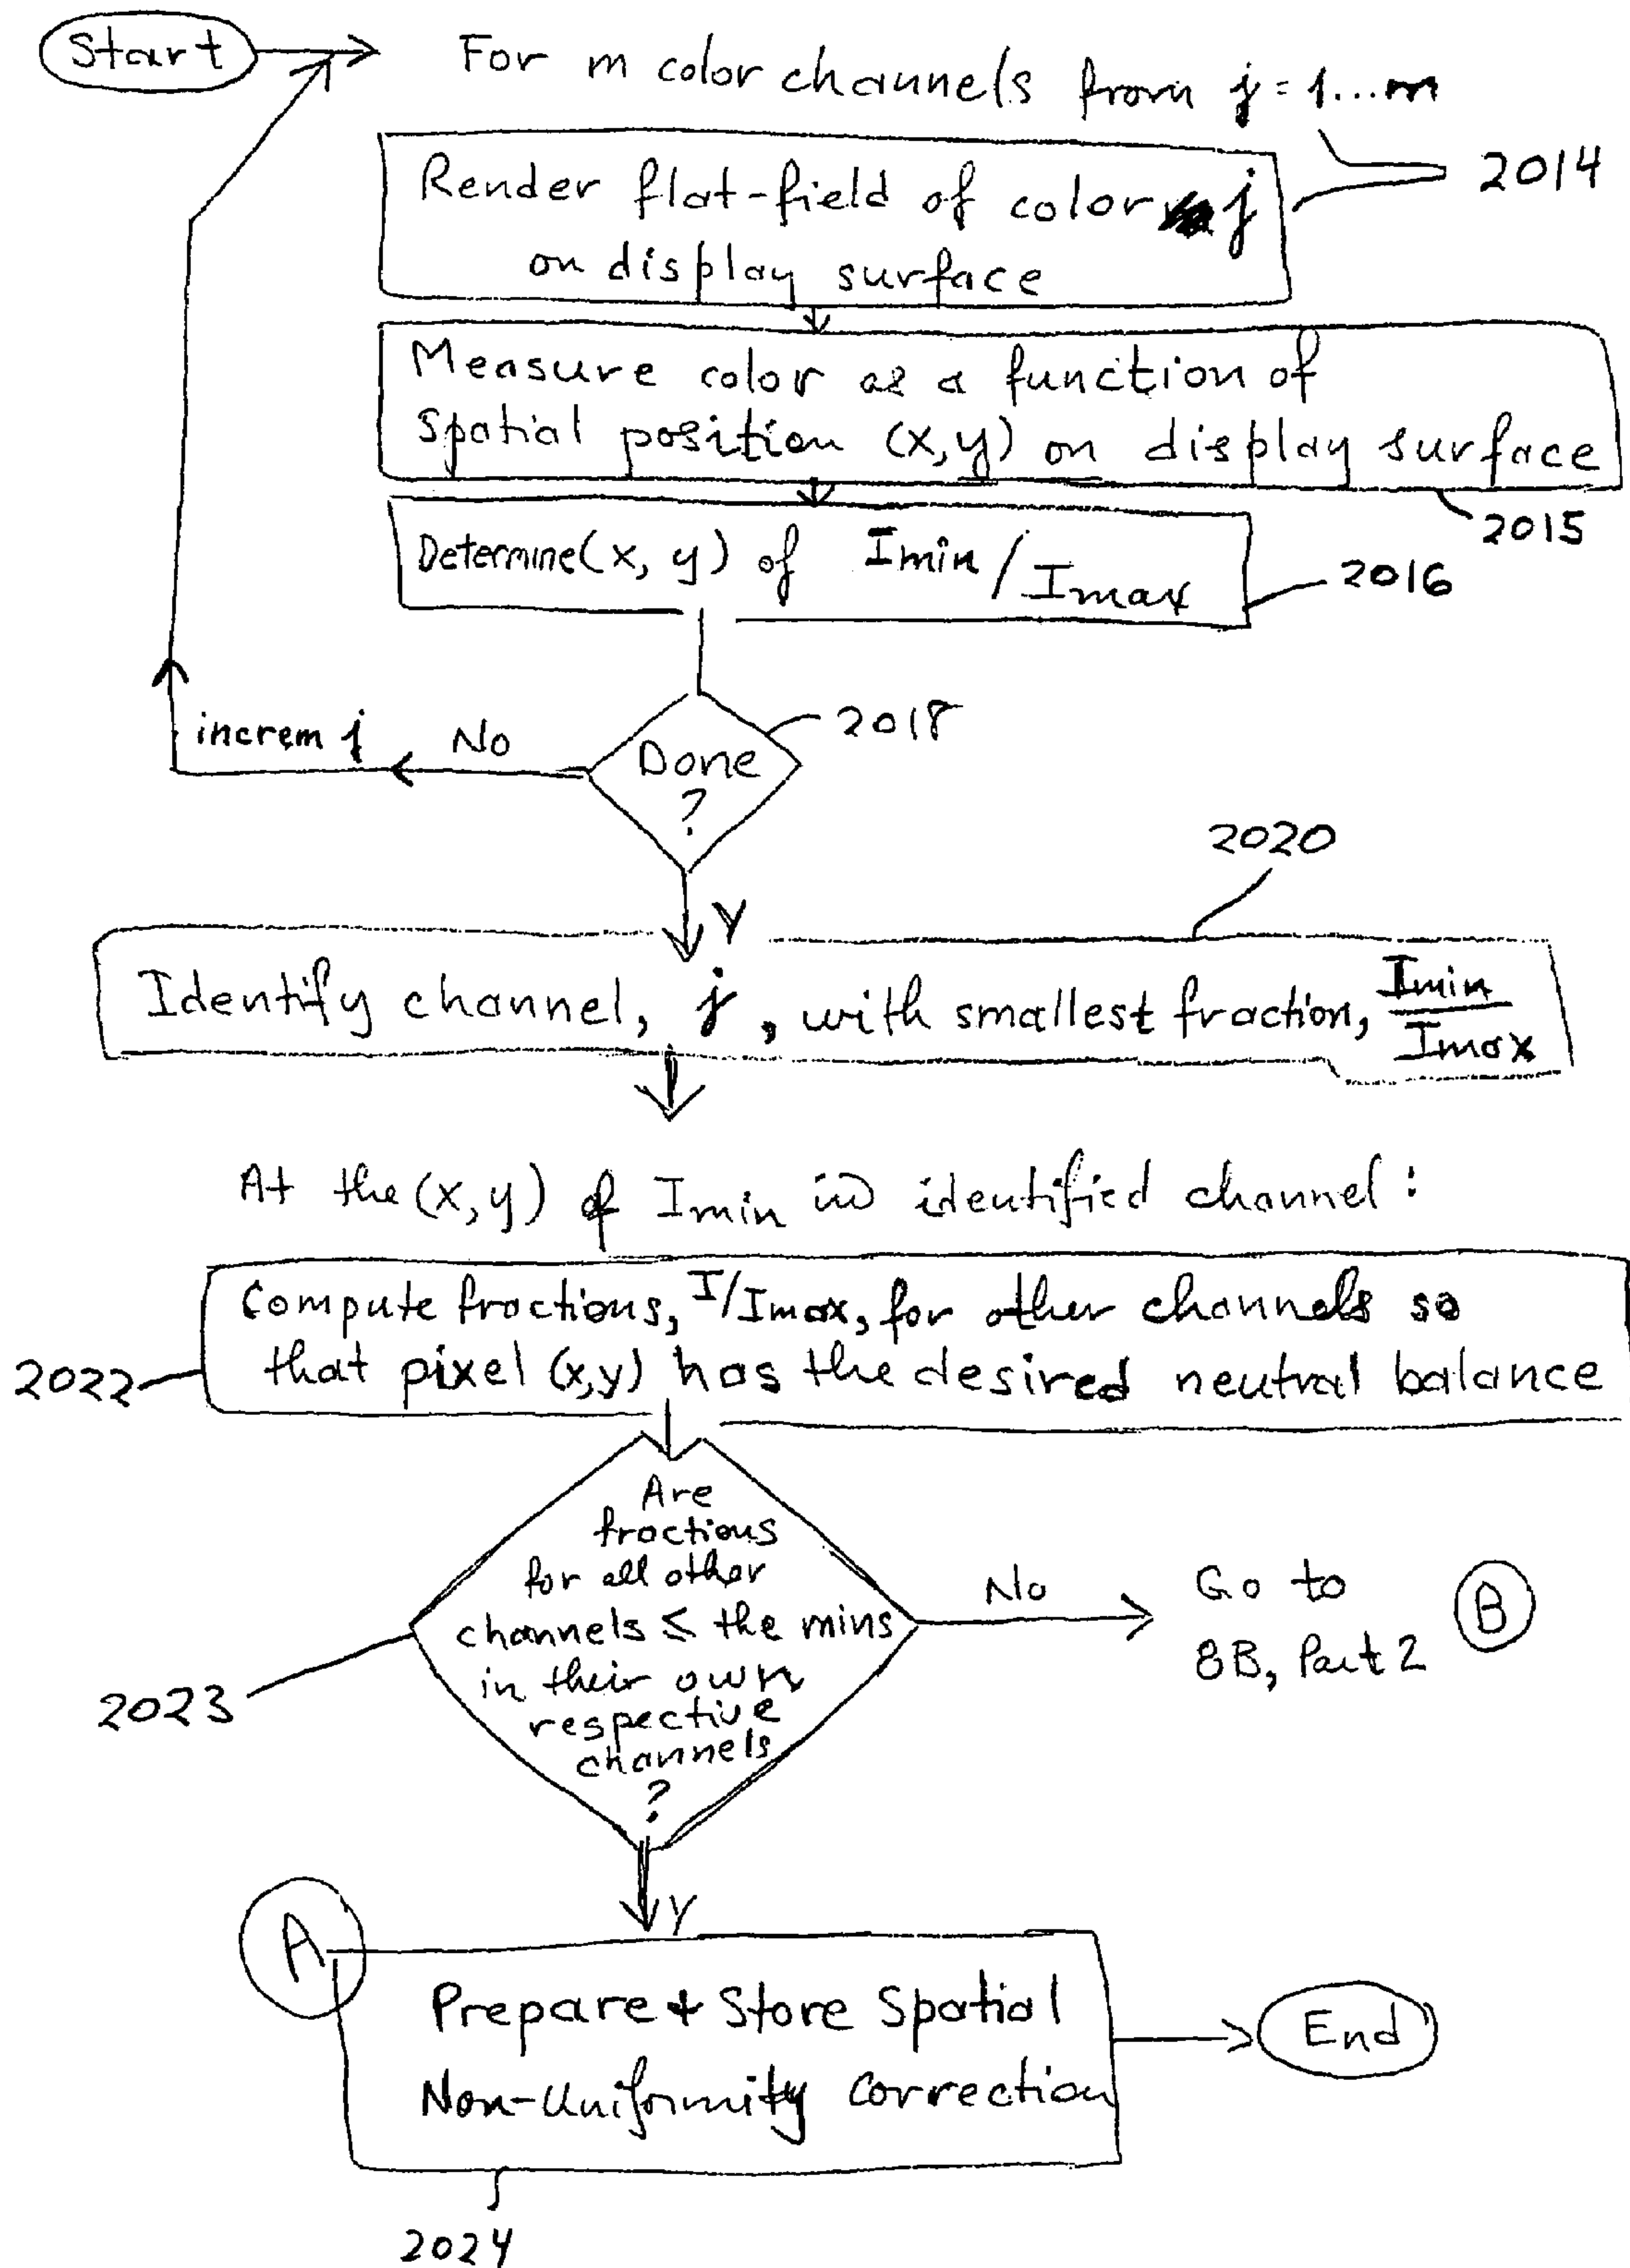 Start
For m color channels from j = 1...m
Render flat-field of color j
on display surface
2014
Measure color as a function of
spatial position (x,y) on display surface
2015
Determine (x, y) of Imin / Imax
2016
Done
?
2018
No
increm j
Y
2020
Identify channel, j, with smallest fraction, Imin / Imax
At the (x,y) of Imin in identified channel:
Compute fractions, I/Imax, for other channels so
that pixel (x,y) has the desired neutral balance
2022
Are
fractions
for all other
channels ≤ the mins
in their own
respective
channels
?
2023
No
Go to
8B, Part 2
B
Y
A
Prepare + Store Spatial
Non-Uniformity Correction
2024
End